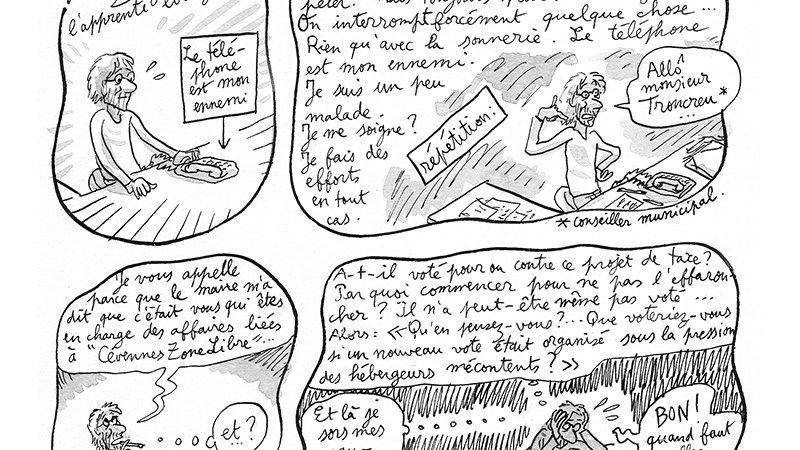 l'apprenti
Le télé-
phone
est mon
ennemi
On interrompt forcément quelque chose...
Rien qu'avec la sonnerie. Le téléphone
est mon ennemi.
Je suis un peu
malade.
Je me soigne?
Je fais des
efforts
en tout
cas.
répétition.
Allô
monsieur
Troncreu*
...
* conseiller municipal.
Je vous appelle
parce que le maire m'a
dit que c'était vous qui êtes
en charge des affaires liées
à "Cévennes Zone Libre"...
et...?
A-t-il voté pour ou contre ce projet de taxe?
Par quoi commencer pour ne pas l'effarou-
cher? Il n'a peut-être même pas voté...
Alors: «Qu'en pensez-vous?... Que voteriez-vous
si un nouveau vote était organisé sous la pression
des hébergeurs mécontents?»
Et là je
sors mes
BON!
quand faut